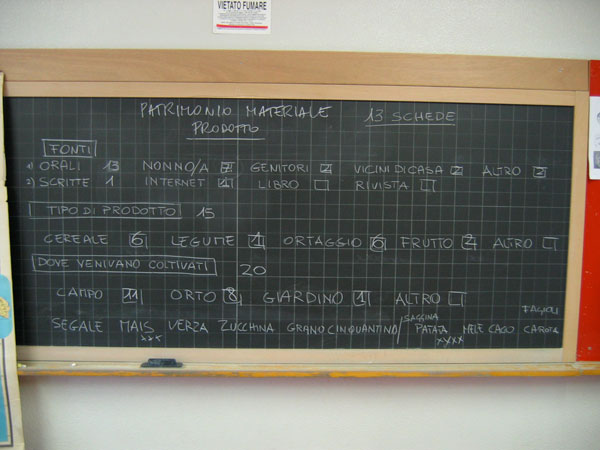 VIETATO FUMARE
PATRIMONIO MATERIALE 13 SCHEDE
PRODOTTO
FONTI
1) ORALI 13 NONNO/A GENITORI VICINI DI CASA 2 ALTRO 2
2) SCRITTE 1 INTERNET 1 LIBRO RIVISTA
TIPO DI PRODOTTO 15
CEREALE 6 LEGUME 1 ORTAGGIO 6 FRUTTO 2 ALTRO
DOVE VENIVANO COLTIVATI 20
CAMPO 11 ORTO 8 GIARDINO 1 ALTRO
SAGGINA FAGIOLI
SEGALE MAIS VERZA ZUCCHINA GRANO CINQUANTINO / PATATA MELE CAGO CAROTA
xxx xxxx